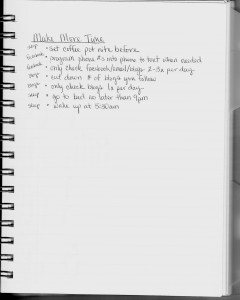 Make More Time
• set coffee pot nite before
• program phone #s into phone to text when needed
• only check facebook/email/blogs 2-3x per day
• cut down # of blogs you follow
• only check blogs 1x per day
• go to bed no later than 9pm
• wake up at 5:30am